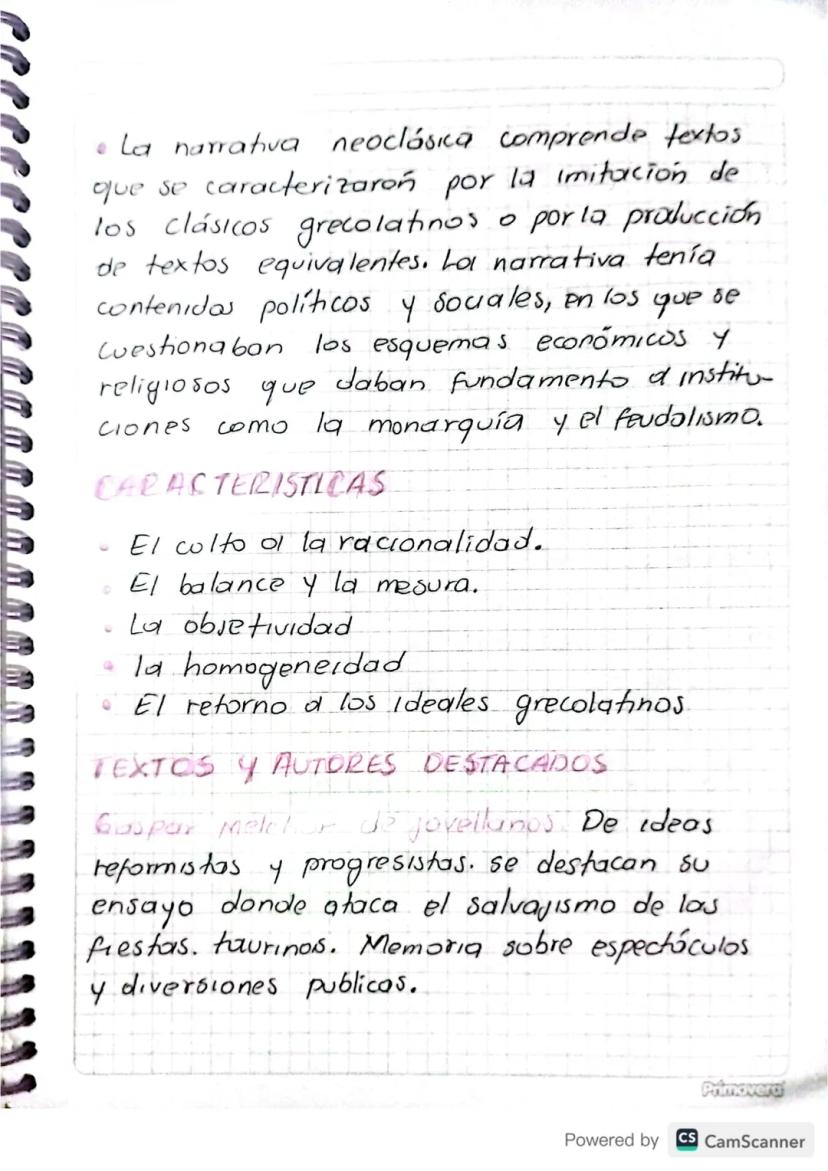 • La narrativa neoclásica comprende textos
que se caracterizaron por la imitación de
los clásicos grecolatinos o por la producción
de textos equivalentes. La narrativa tenía
contenidos políticos y sociales, en los que se
cuestionaban los esquemas económicos y
religiosos que daban fundamento a institu-
ciones como la monarquía y el feudalismo.
CARACTERISTICAS
• El culto a la racionalidad.
• El balance y la mesura.
• La objetividad
• la homogeneidad
• El retorno a los ideales grecolatinos
TEXTOS Y AUTORES DESTACADOS
Gaspar Melchor de jovellanos. De ideas
reformistas y progresistas. se destacan su
ensayo donde ataca el salvajismo de las
fiestas. taurinos. Memoria sobre espectáculos
y diversiones publicas.
Primavera
Powered by CS CamScanner